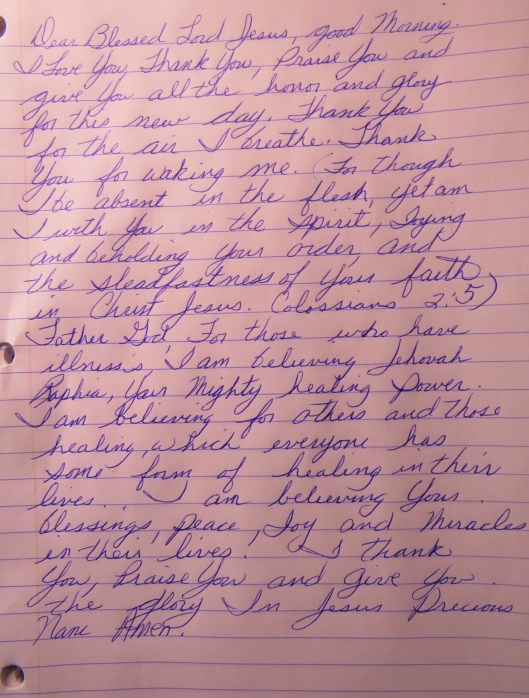 Dear Blessed Lord Jesus, good Morning.
I Love You, Thank You, Praise You and
give You all the honor and glory
for this new day. Thank You
for the air I breathe. Thank
You for waking me. (For though
I be absent in the flesh, yet am
I with You in the spirit, Joying
and beholding Your order, and
the steadfastness of Your faith
in Christ Jesus. Colossians 2:5)
Father God, For those who have
illness's, I am believing Jehovah
Raphia, Your Mighty healing Power.
I am believing for others and those
healing, which everyone has
some form of healing in their
lives. I am believing Your
blessings, peace, Joy and Miracles
in their lives. I thank
You, Praise You and give You
the glory In Jesus Precious
Name Amen.